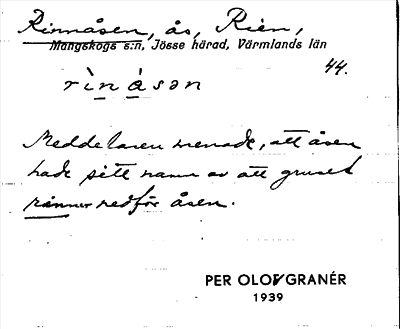 Rinnåsen, ås, Rien,
Mangskogs s:n, Jösse härad, Värmlands län
44.
rìnåsən
Meddelaren menade, att åsen
hade sitt namn av att gruset
rinner nedför åsen.
PER OLOV GRANÉR
1939